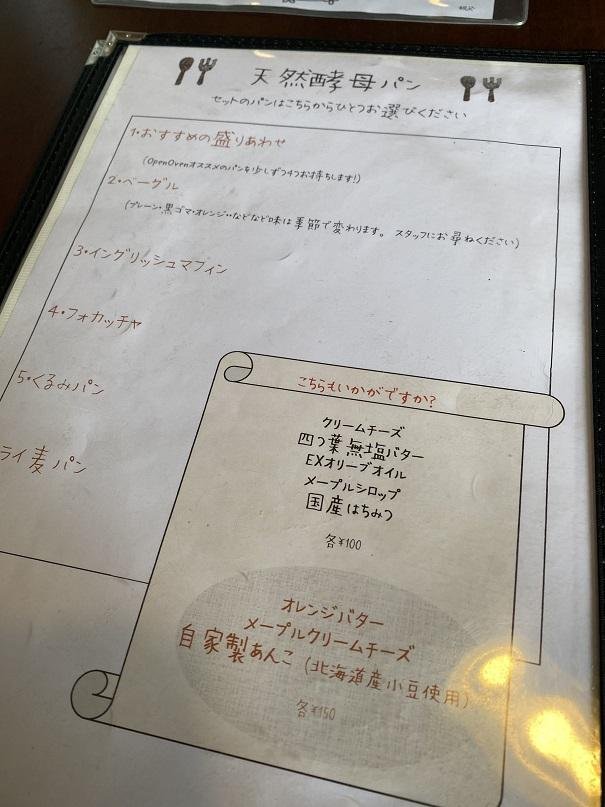 天然酵母パン
セットのパンはこちらからひとつお選びください
1・おすすめの盛りあわせ
(OpenOvenオススメのパンを少しずつ4つお持ちします!)
2・ベーグル
(プレーン・黒ゴマ・オレンジ・・などなど味は季節で変わります。 スタッフにお尋ねください)
3・イングリッシュマフィン
4・フォカッチャ
5・くるみパン
ライ麦パン
こちらもいかがですか?
クリームチーズ
四つ葉無塩バター
EXオリーブオイル
メープルシロップ
国産はちみつ
各¥100
オレンジバター
メープルクリームチーズ
自家製あんこ(北海道産小豆使用)
各¥150